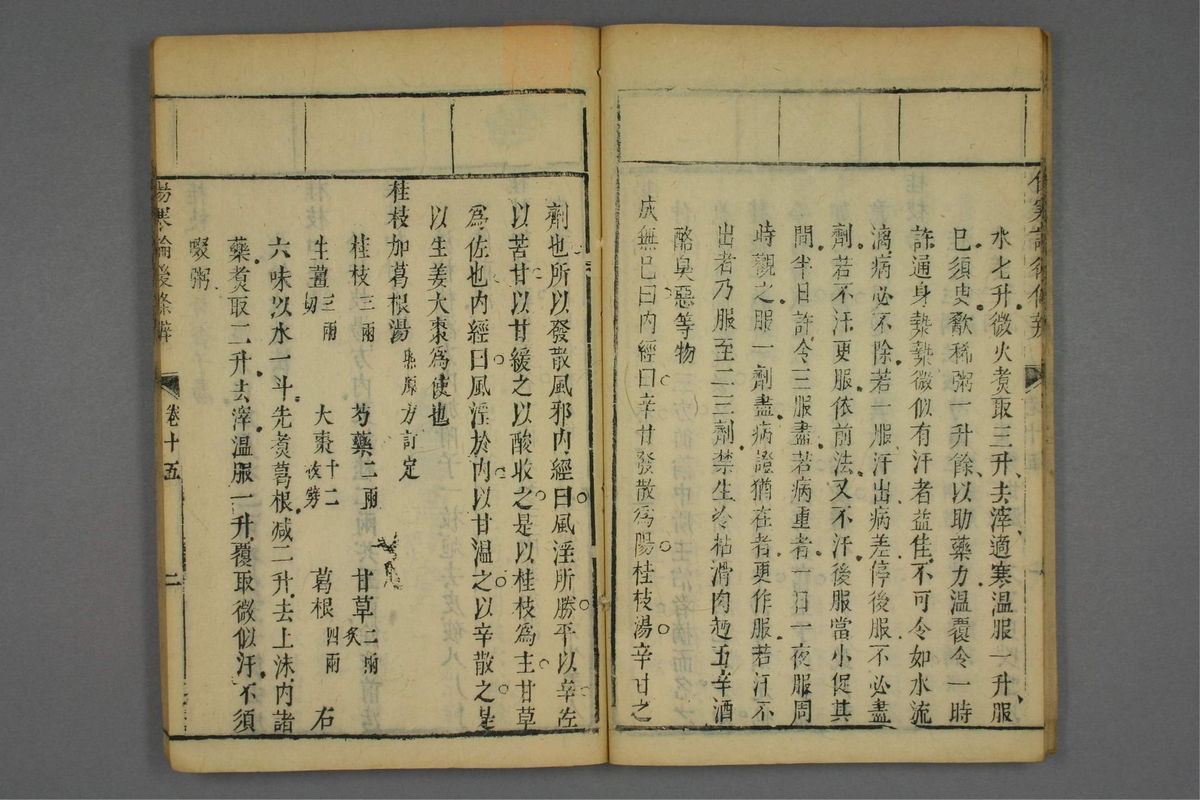 水七升微火煑取三升去滓適寒温服一升服
已須臾歠稀粥一升餘以助藥力温覆令一時
許通身漐漐微似有汗者益佳不可令如水流
漓病必不除若一服汗出病差停後服不必盡
劑若不汗更服依前法又不汗後服當小促其
間半日許令三服盡若病重者一日一夜服周
時觀之服一劑盡病證猶在者更作服若汗不
出者乃服至二三劑禁生冷粘滑肉麪五辛酒
酪臭惡等物
成無已曰內經曰辛甘發散爲陽桂枝湯辛甘之
劑也所以發散風邪內經曰風淫所勝平以辛佐
以苦甘以甘緩之以酸收之是以桂枝爲主甘草
爲佐也內經曰風淫於內以甘温之以辛散之是
以生姜大棗爲使也
桂枝加葛根湯 原方訂定
桂枝三兩 芍藥二兩 甘草二兩炙
生薑三兩切 大棗十二枚劈 葛根四兩 右
六味以水一斗先煑葛根减二升去上沫內諸
藥煑取二升去滓温服一升覆取微似汗不須
啜粥
傷寒論後條辨 卷十五 二